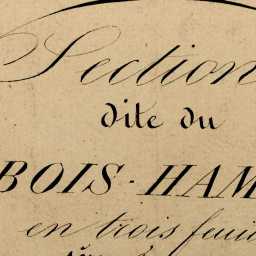 Section
dite du
BOIS-HAM
en trois feui